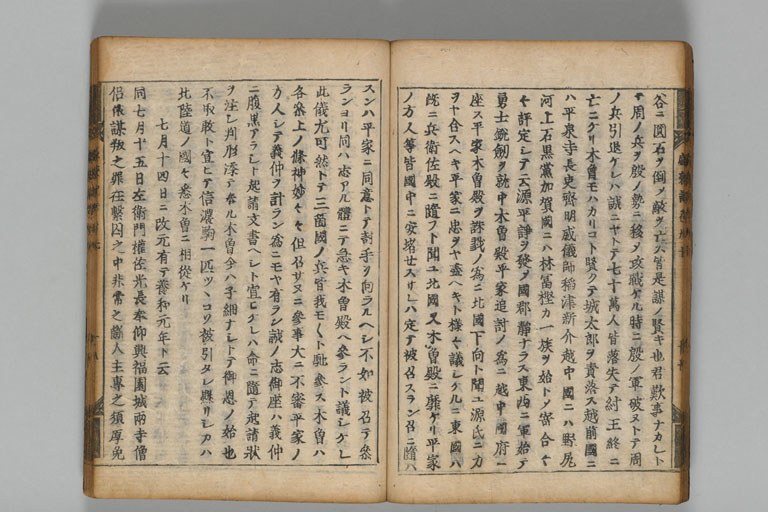 谷ニ圓石ヲ倒ノ敵ヲ亡ス皆是謀ノ賢キ也君歎事ナカレト
テ周ノ兵ヲ殷ノ勢ニ移ノ攻戦ケル時ニ殷ノ軍破ヌトテ周
ノ兵引退ケレハ誠ニヤトテ七十萬人皆落失テ紂王終ニ
亡ニケリ木曾モハカリコト賢クテ城太郎ヲ責落ス越前國ニ
ハ平泉寺長吏齊明威儀師稲津新介越中國ニハ野尻
河上石黒黨加賀國ニハ林富樫カ一族ヲ始トノ寄合々
々評定シテ云源平諍ヲ發ノ國郡靜ナラス東西ニ軍始テ
勇士鋭劔ヲ就中木曾殿平家追討ノ為ニ越中國府ニ
座ス平家木曾殿ヲ誅戮ノ為ニ北國下向ト聞ユ源氏ニ力
ヲヤ合スヘキ平家ニ忠ヲヤ盡ヘキト様々議シケルニ東國ハ
既ニ兵衛佐殿ニ隨フト聞ユ北國又木曾殿ニ靡ケリ平家
ノ方人等皆國中ニ安堵セスサレハ定テ被召スラン召ニ隨ハ
スンハ平家ニ同意トテ討手ヲ向ラルヘシ不如被召テ参
ランヨリ同ハ志アル體ニテ急キ木曾殿ヘ参ラント議シケレ
此儀尤可然トテ三箇國ノ兵皆我モ〱ト馳参ス木曾ハ
各参上ノ條神妙々々但召サヌニ参事大ニ不審平家ノ
方人シテ義仲ヲ計ラン為ニモヤ有ラン誠ノ志御座ハ義仲
ニ腹黒アラシト起請文書ヘシト宣ヒケレハ命ニ隨テ起請状
ヲ注シ判形添テ奉ル木曾今ハ子細ナシトテ御恩ノ始也
不取敢ト宜ヒテ信濃駒一匹ツヽコソ被引タレ懸リシカハ
北陸道ノ國々悉木曾ニ相從ケリ
七月十四日ニ改元有テ養和元年ト云
同七月十五日左衛門權佐光長奉仰興福園城兩寺僧
侶依謀叛之罪在繫囚之中非常之斷人主專之須原免